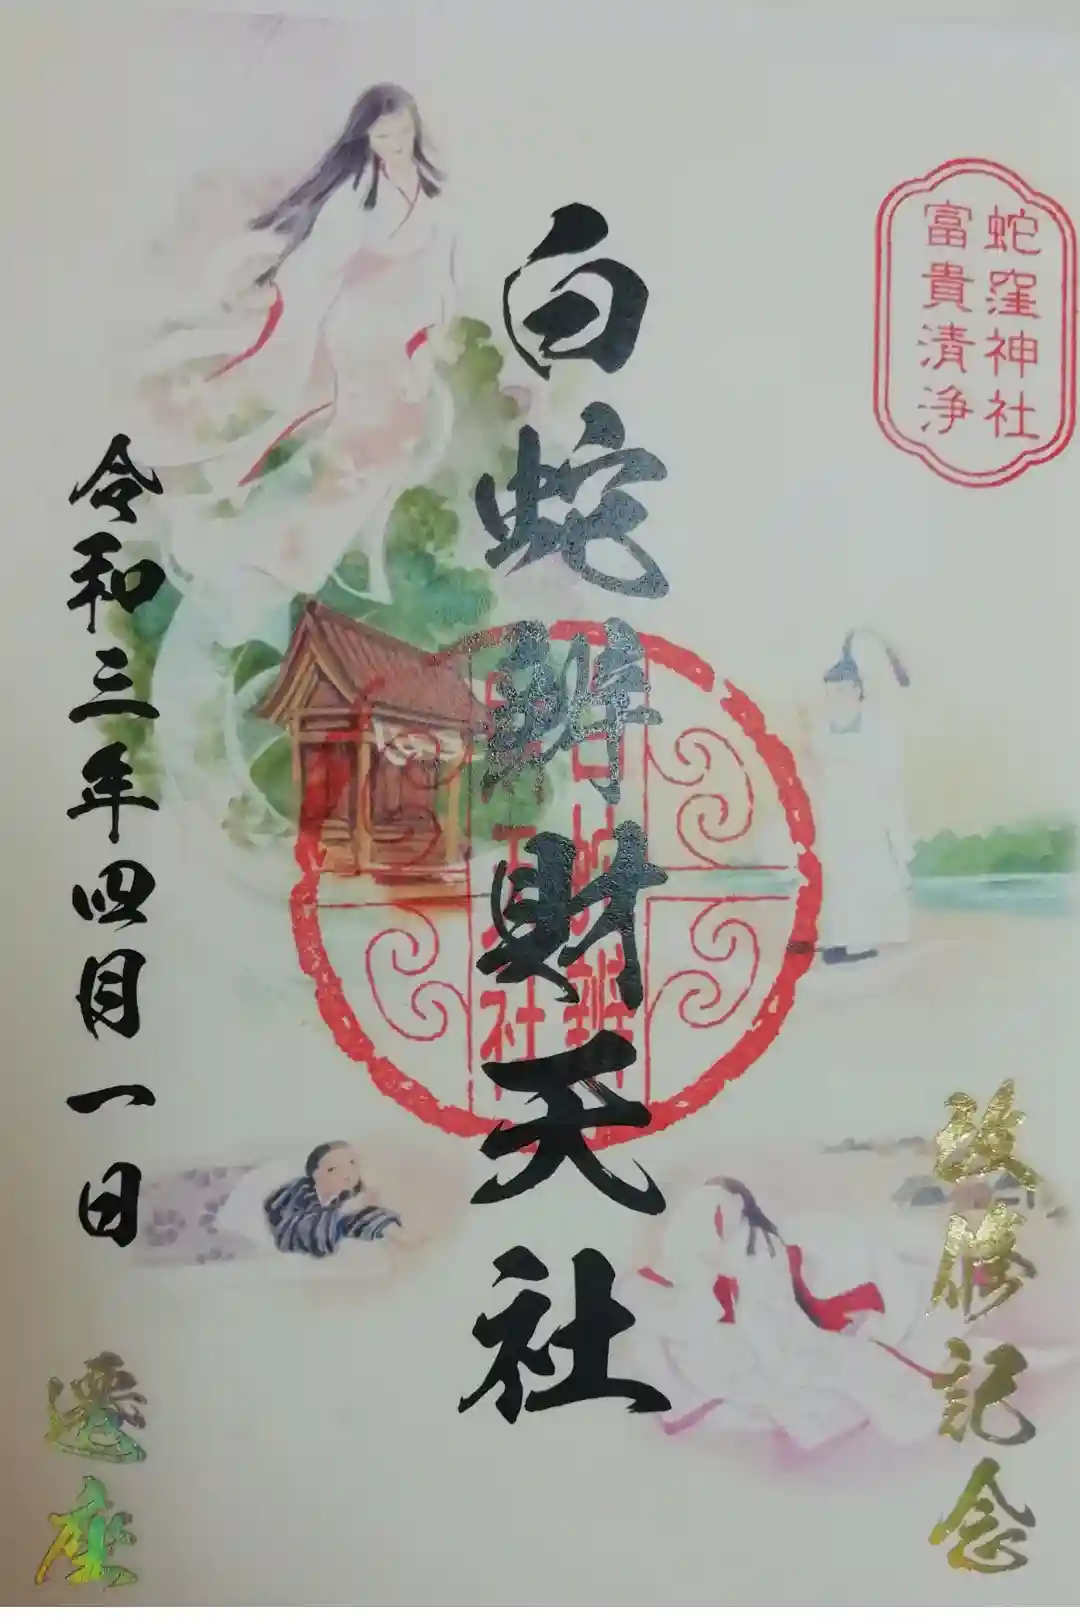 蛇窪神社
富貴清浄
改修記念
白蛇辨財天社
令和三年四月一日
遷座